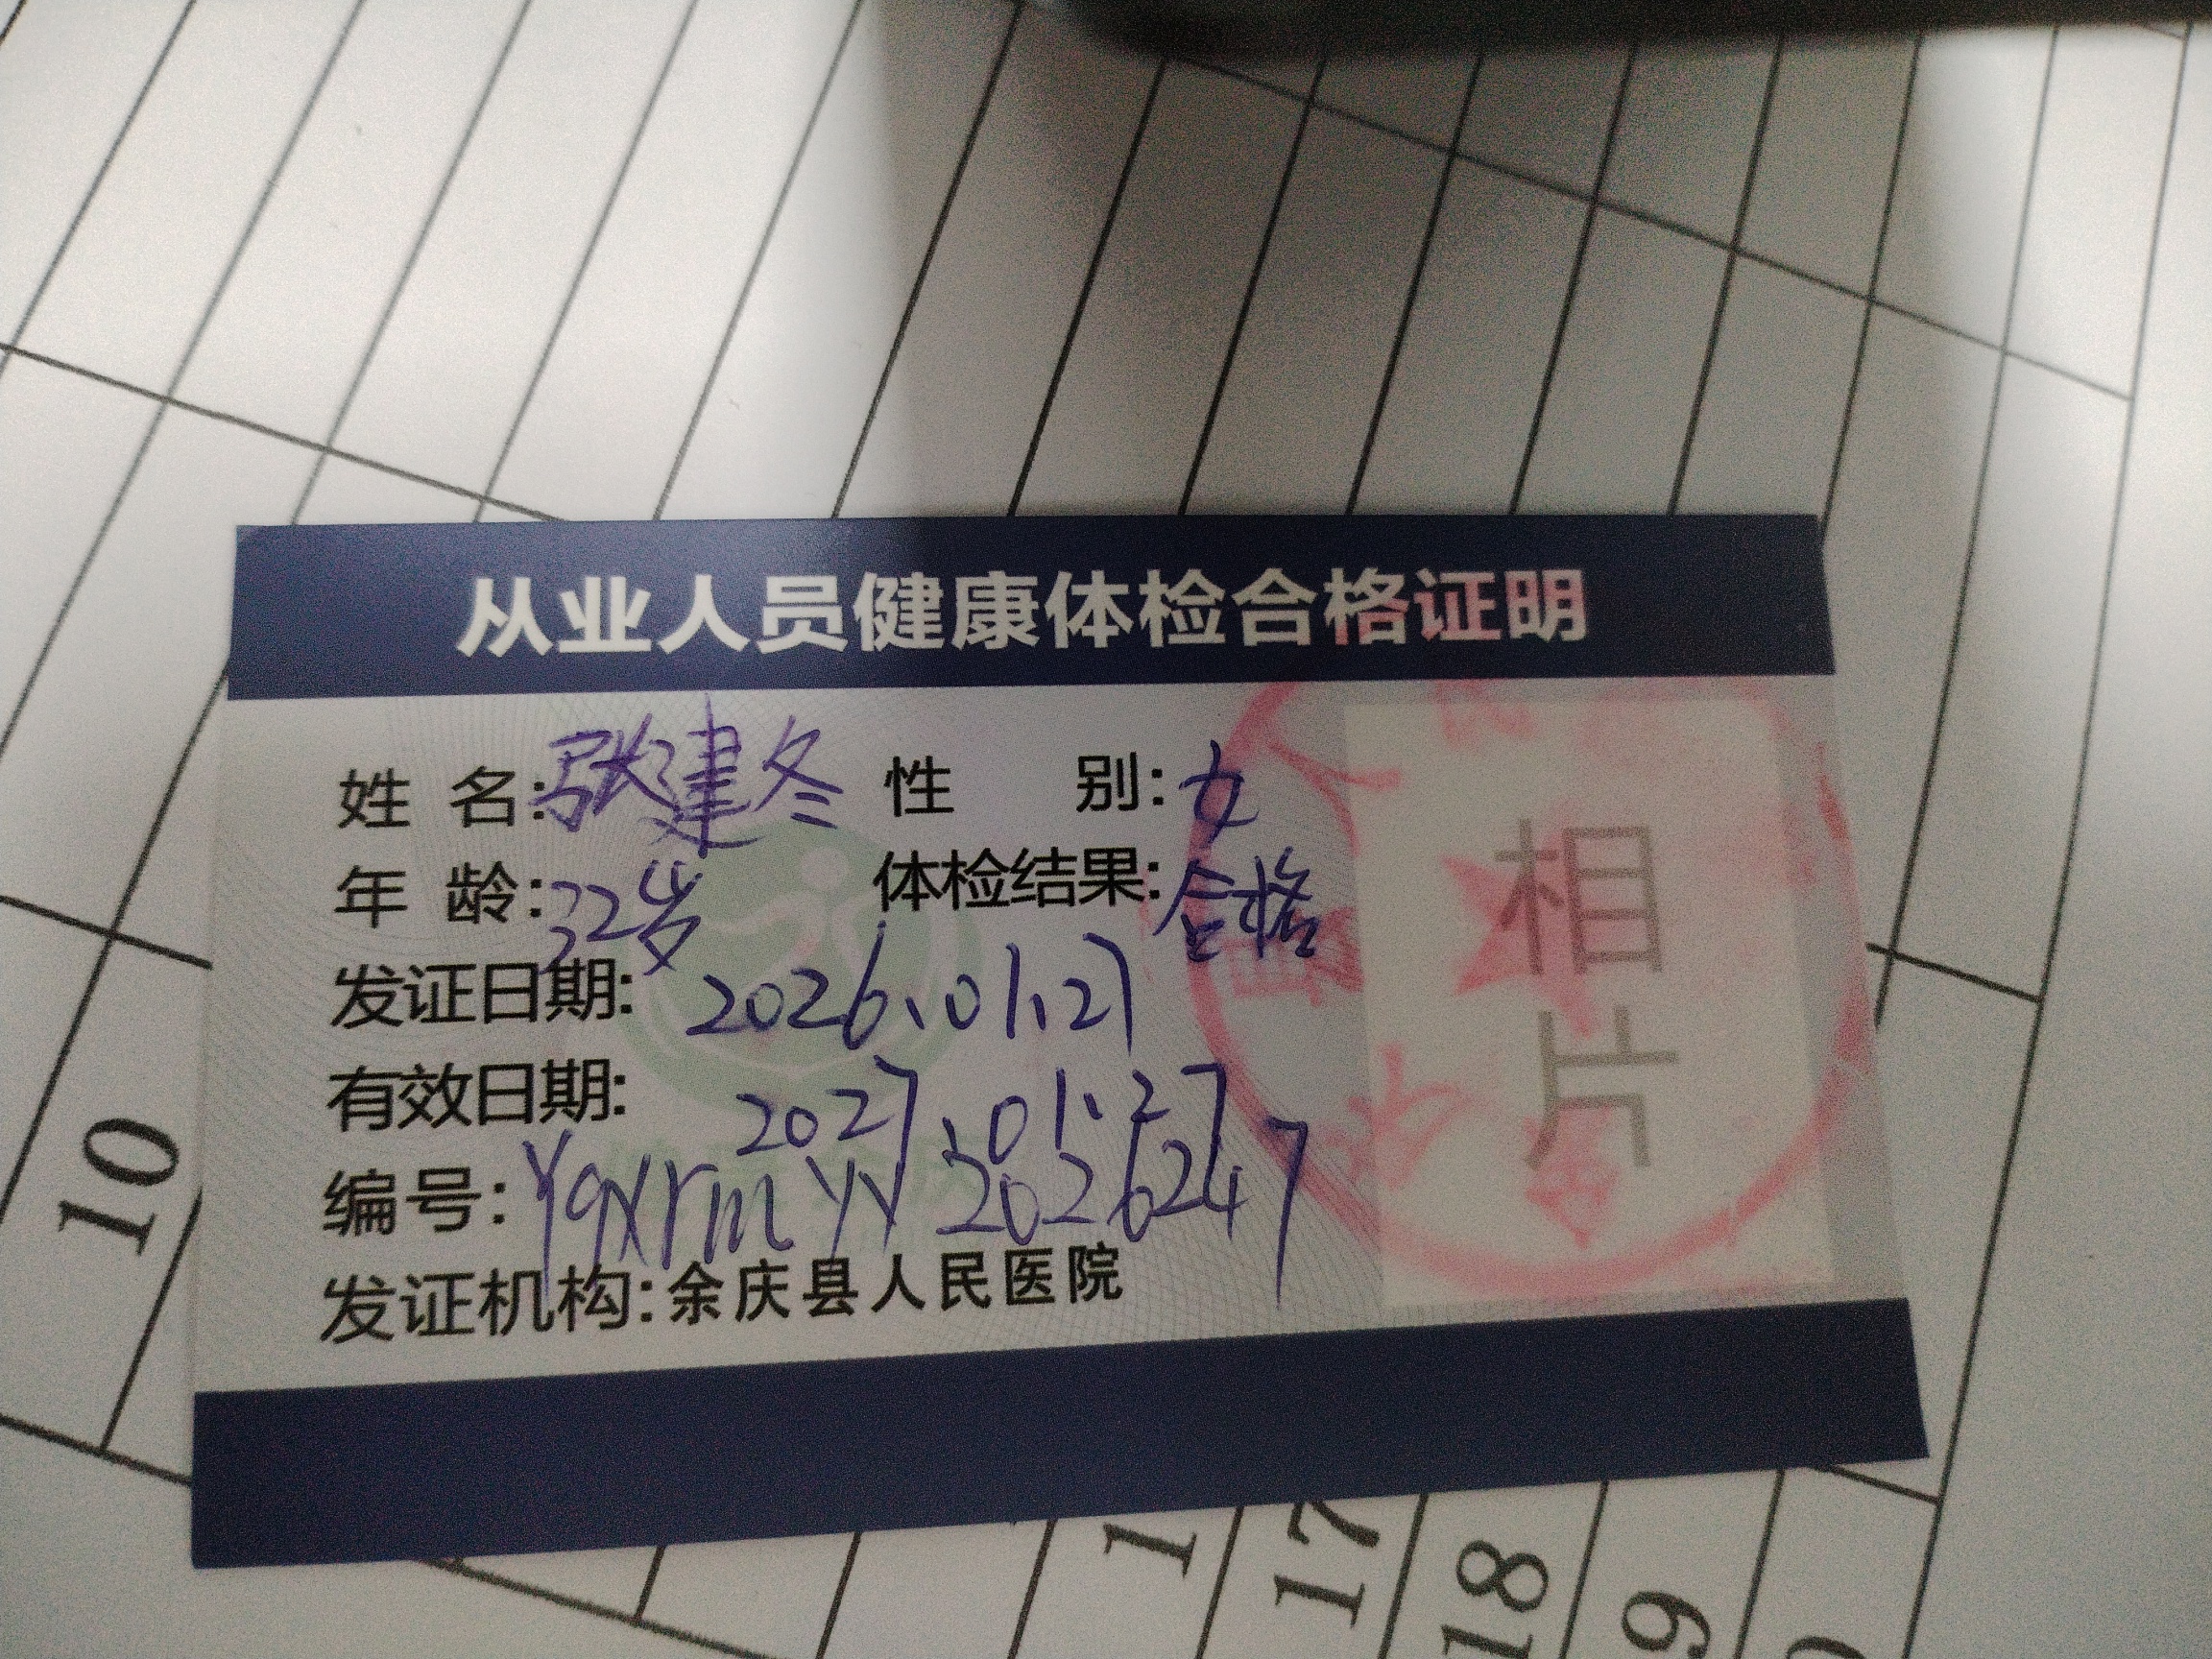 从业人员健康体检合格证明
姓 名:张建冬 性 别:女
年 龄:32岁 体检结果:合格
发证日期: 2026.01.27
有效日期: 2027.01.27
编号:Yqxrmyy2026247
发证机构:余庆县人民医院
相片
10
17
18